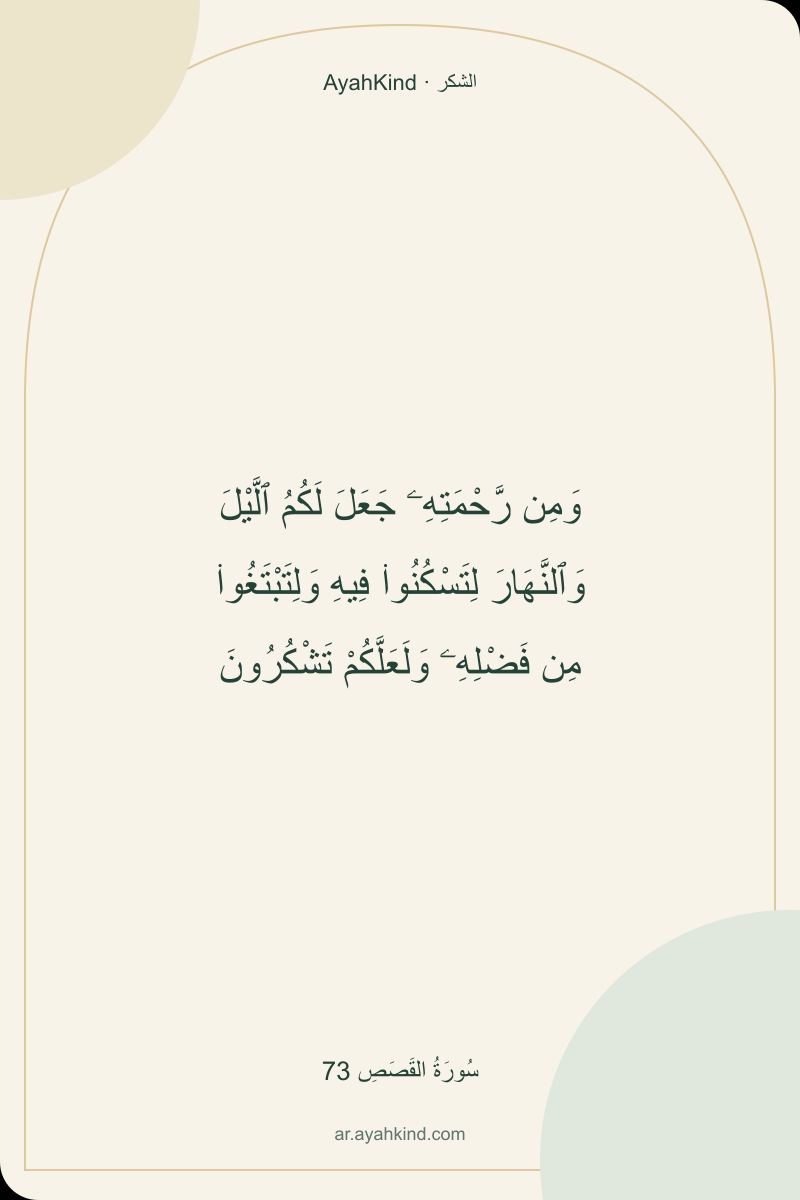 AyahKind · الشكر
وَمِن رَّحْمَتِهِۦ جَعَلَ لَكُمُ ٱلَّيْلَ
وَٱلنَّهَارَ لِتَسْكُنُوا۟ فِيهِ وَلِتَبْتَغُوا۟
مِن فَضْلِهِۦ وَلَعَلَّكُمْ تَشْكُرُونَ
سُورَةُ القَصَصِ 73
ar.ayahkind.com